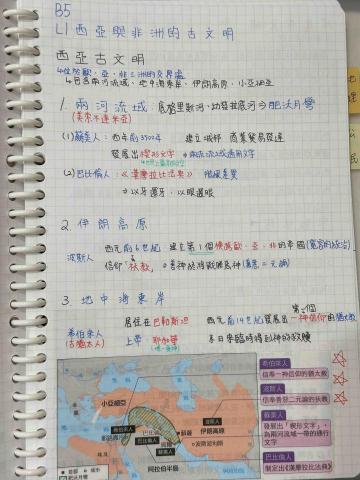 B5
L1 西亞與非洲的古文明
西亞古文明
↳位於歐、亞、非三洲的交界處
↳包含兩河流域、地中海東岸、伊朗高原、小亞細亞
1. 兩河流域 底格里斯河、幼發拉底河⇒肥沃月彎
(美索不達米亞)
(1)蘇美人：西元前3500年 建立城邦 商業貿易發達
發展出楔形文字 ⇒兩河流域通用文字
(2)巴比倫人：《漢摩拉比法典》
⇒以牙還牙，以眼還眼
2. 伊朗高原
波斯人 西元前6世紀 建立第1個橫跨歐、亞、非的帝國
信仰「祆教」
3. 地中海東岸 第一個
希伯來人 居住在巴勒斯坦 西元前14世紀發展出一神信仰的猶太教
(古猶太人) 上帝：耶和華 末日來臨時得到神的救贖
希伯來人
信奉一神信仰的猶太教
波斯人
信奉善惡二元論的祆教
蘇美人
發展出「楔形文字」，
為兩河流域一帶的通行
文字
巴比倫人
制定出《漢摩拉比法典》
小亞細亞
希伯來人
巴比倫人
蘇美人
波斯人
伊朗高原
阿拉伯半島
肥沃月彎